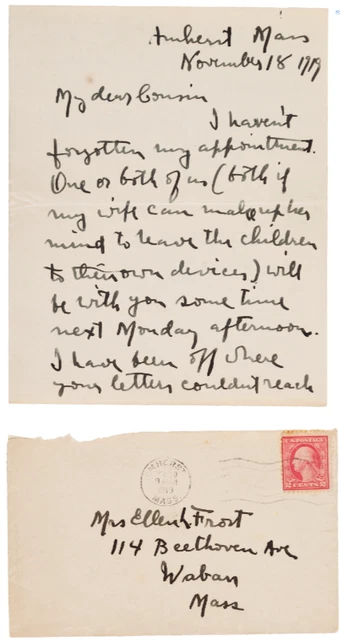 Amherst Mass
November 18 1919
My dear Cousin
I haven't
forgotten my appointment.
One or both of us (both if
my wife can make up her
mind to leave the children
to their own devices) will
be with you some time
next Monday afternoon.
I have been off where
your letters couldn't reach
AMHERST
MASS
U.S. POSTAGE
2 CENTS 2
Mrs Ellen Frost
114 Beethoven Ave
Waban
Mass